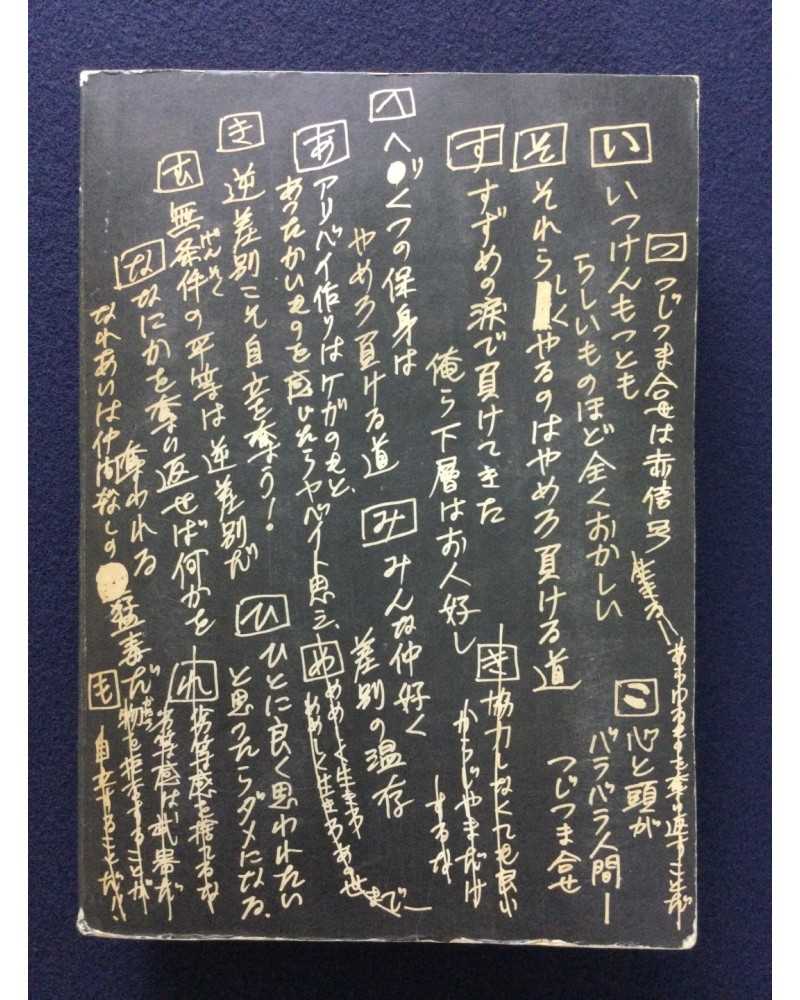 つ つじつま合せは赤信号
い いつけんもつとも
らしいものほど全くおかしい
こ 心と頭が
バラバラ人間ー
つじつま合せ
そ それら
しくやるのはやめろ負ける道
す すずめの涙で負けてきた
俺ら下層はお人好し
き 協力しなくても良い
からじやまだけ
するな
へ へりくつの保身は
やめろ負ける道
み みんな仲好く
差別の温存
あ アリバイ作りはケガのもと、
あつたかいものを感じたらヤベイト思え、
め めめしく生きろ
めめしく生きろあの世まで
き 逆差別こそ自立を奪う!
ひ ひとに良く思われたい
と思つたらダメになる、
む 無条件の平等は逆差別だ
げんそく
れ 劣等感を捨てるな
劣等感は武器だ
な なにかを奪い返せば何かを
奪われる
なれあいは仲間殺しの猛毒だ
も 物を拒否することが
自立することだ